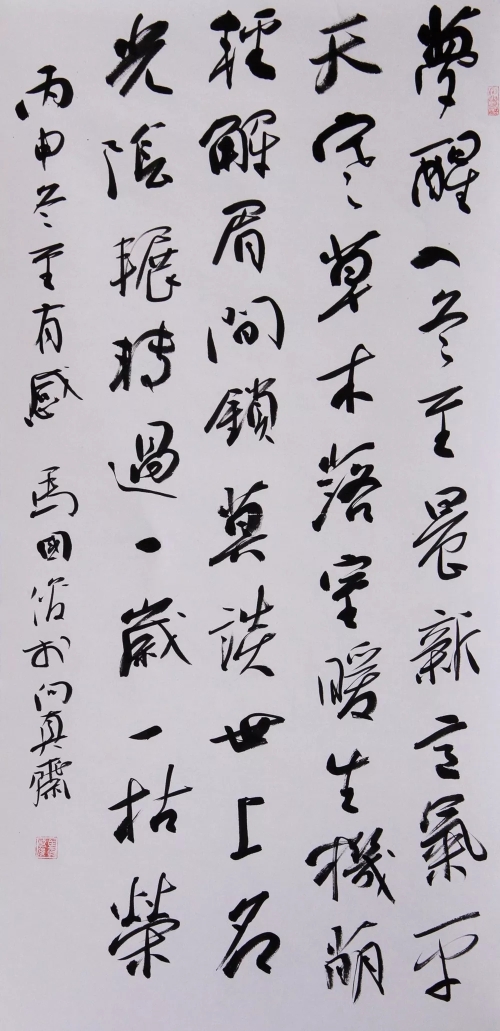 夢醒入冬至晨新意氣平
天寒草木落室暖生機萌
輕解眉間鎖莫談世上名
光陰輾轉過一歲一枯榮
丙申冬至有感 馬國俊於問真齋